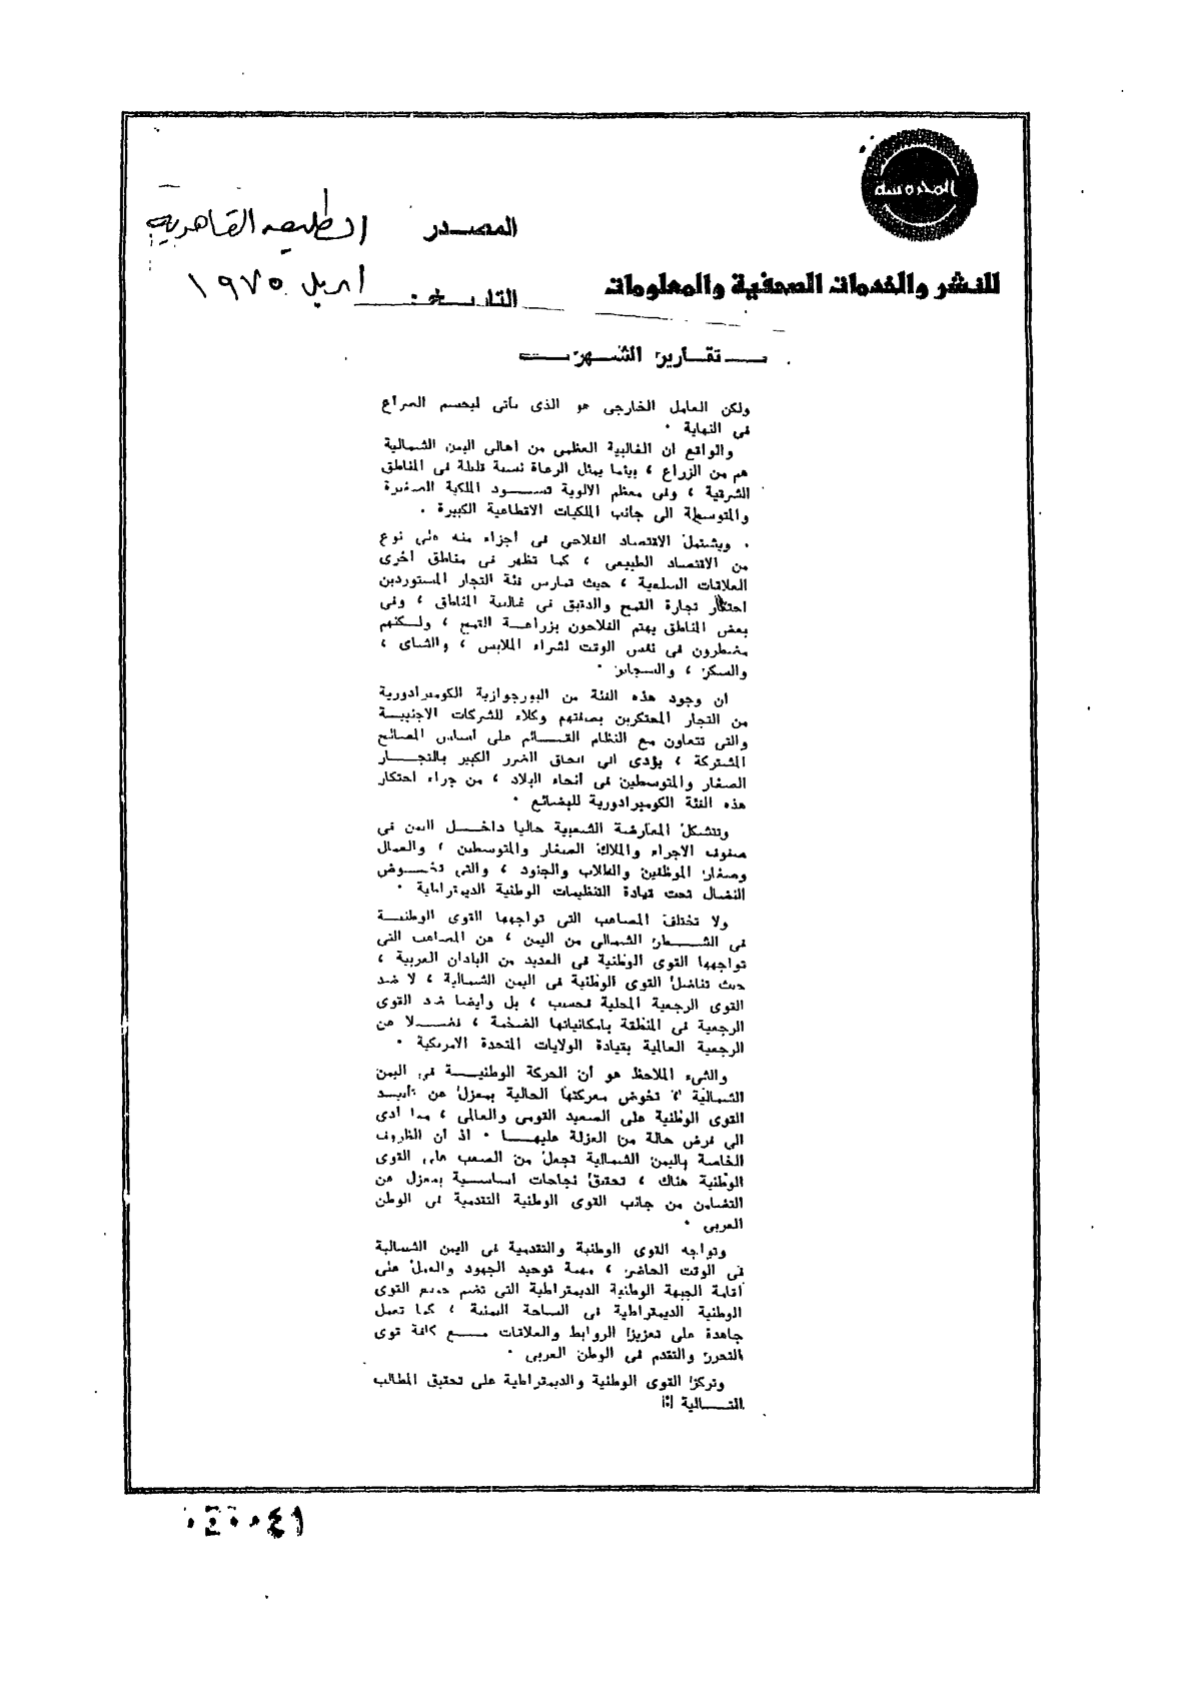 المحروسة
المصدر الطليعه القاهرية
للنشر والخدمات الصحفية والمعلومات
التاريخ : ابريل ١٩٧٥
تقارير الشهر
ولكن العامل الخارجى هو الذى يأتى ليحسم الصراع
فى النهاية ٠
والواقع ان الغالبية العظمى من اهالى اليمن الشمالية
هم من الزراع ، بينما يمثل الرعاة نسبة قليلة فى المناطق
الشرقية ، وفى معظم الالوية تســود الملكية الصغيرة
والمتوسطة الى جانب الملكيات الاقطاعية الكبيرة .
ويشتمل الاقتصاد الفلاحى فى اجزاء منه على نوع
من الاقتصاد الطبيعى ، كما تظهر فى مناطق اخرى
العلاقات السلعية ، حيث تمارس فئة التجار المستوردين
احتكار تجارة القمح والدقيق فى غالبية المناطق ، وفى
بعض المناطق يهتم الفلاحون بزراعــة القمح ، ولـكنهم
مضطرون فى نفس الوقت لشراء الملابس ، والشاى ،
والسكر ، والسجاير ٠
ان وجود هذه الفئة من البورجوازية الكومبرادورية
من التجار المحتكرين بصفتهم وكلاء للشركات الاجنبيــة
والتى تتعاون مع النظام القــائم على أساس المصالح
المشتركة ، يؤدى الى الحاق الضرر الكبير بالتجــار
الصغار والمتوسطين فى أنحاء البلاد ، من جراء احتكار
هذه الفئة الكومبرادورية للبضائع ٠
وتتشكل المعارضة الشعبية حاليا داخــل اليمن فى
صفوف الاجراء والملاك الصغار والمتوسطين ، والعمال
وصغار الموظفين والطلاب والجنود ، والتى تخــوض
النضال تحت قيادة التنظيمات الوطنية الديمقراطية ٠
ولا تختلف المصاعب التى تواجهها القوى الوطنيــة
فى الشــطر الشمالى من اليمن ، عن المصاعب التى
تواجهها القوى الوطنية فى العديد من البلدان العربية ،
حيث تناضل القوى الوطنية فى اليمن الشمالية ، لا ضد
القوى الرجعية المحلية فحسب ، بل وأيضا ضد القوى
الرجعية فى المنطقة بامكانياتها الضخمة ، فضــلا عن
الرجعية العالمية بقيادة الولايات المتحدة الامريكية ٠
والشىء الملاحظ هو أن الحركة الوطنيــة فى اليمن
الشمالية ، تخوض معركتها الحالية بمعزل عن تأييــد
القوى الوطنية على الصعيد القومى والعالمى ، مما أدى
الى فرض حالة من العزلة عليهــا ٠ اذ ان الظروف
الخاصة باليمن الشمالية تجعل من الصعب على القوى
الوطنية هناك ، تحقيق نجاحات اساسية بمعزل عن
التضامن من جانب القوى الوطنية التقدمية فى الوطن
العربى ٠
وتواجه القوى الوطنية والتقدمية فى اليمن الشمالية
فى الوقت الحاضر ، مهمة توحيد الجهود والعمل على
اقامة الجبهة الوطنية الديمقراطية التى تضم جميع القوى
الوطنية الديمقراطية فى الساحة اليمنية ، كما تعمل
جاهدة على تعزيز الروابط والعلاقات مــع كافة قوى
التحرر والتقدم فى الوطن العربى ٠
وتركز القوى الوطنية والديمقراطية على تحقيق المطالب
التــالية :